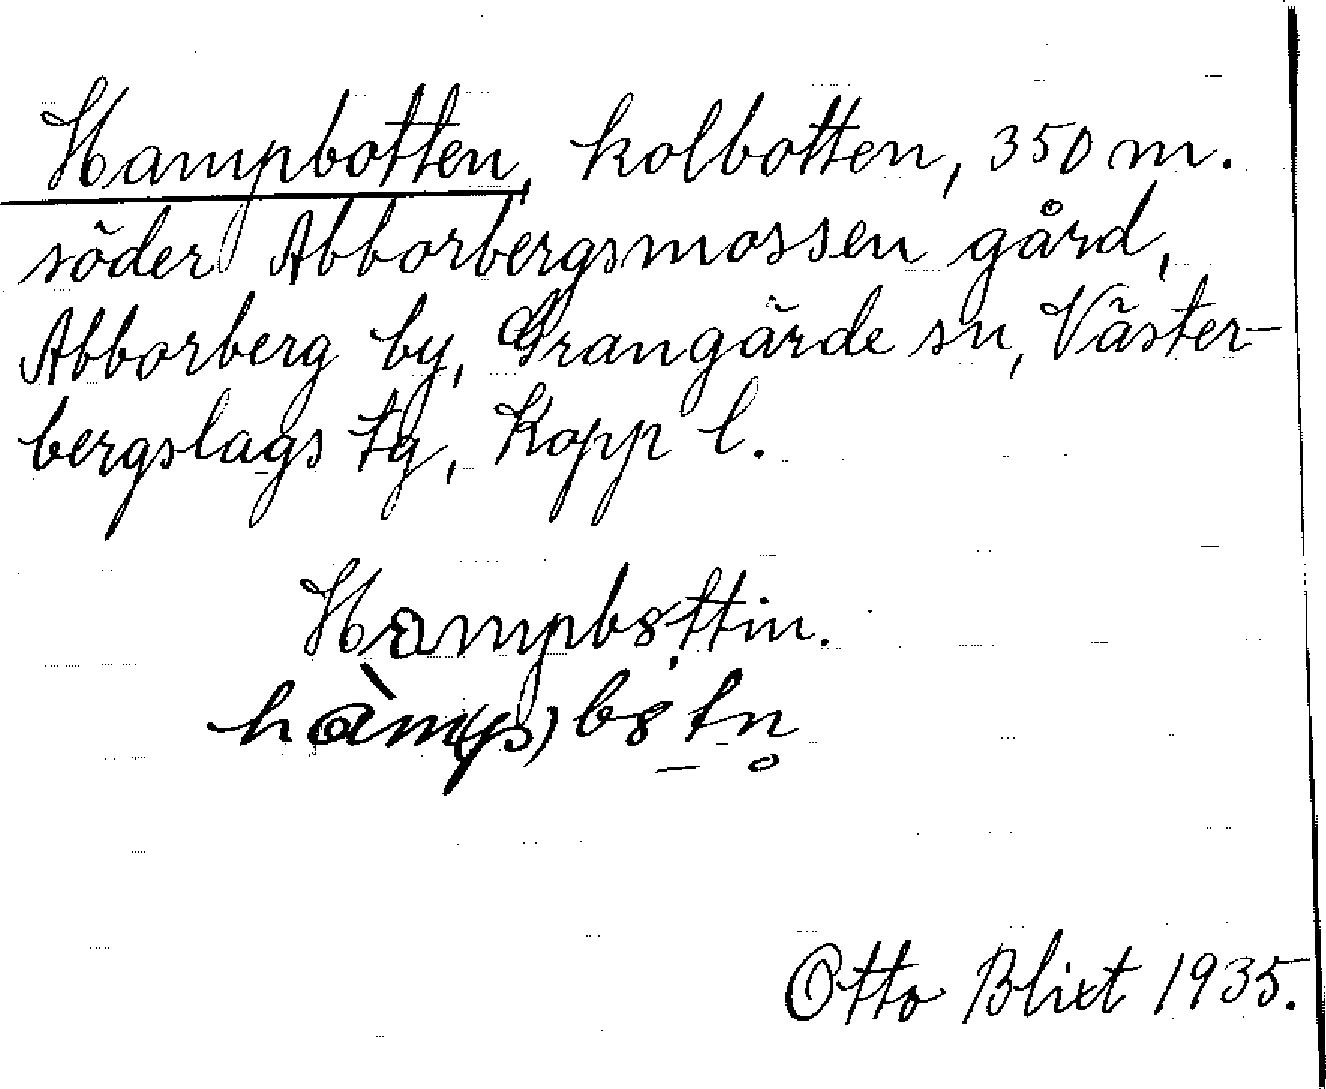 Hampbotten, kolbotten, 350 m.
söder Abborbergsmossen gård,
Abborberg by, Grangärde sn, Väster-
bergslags tg, Kopp l.
Hampbȣttin.
hàm(p)bȣtn̥
Otto Blixt 1935.